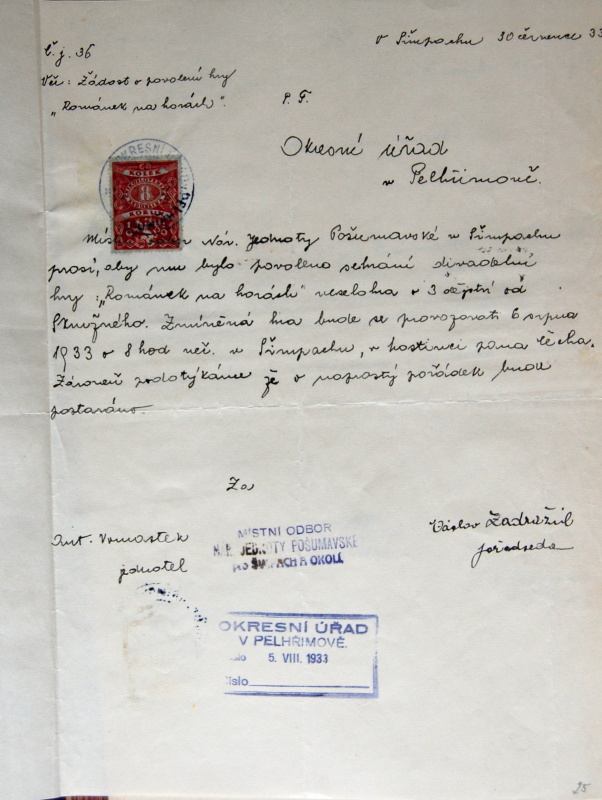 V Šimpachu 30 července 33
Č. j. 36
Věc: Žádost o povolení hry
„Románek na horách".
P. T.
Okresní úřad
v Pelhřimově.
OKRESNÍ
KOLEK
8
KORUN
Nár. Jednoty Pošumavské v Šimpachu
prosí, aby mu bylo povoleno sehrání divadelní
hry: „Románek na horách" veselohra o 3 dějství od
Skružného. Zmíněná hra bude se provozovati 6 srpna
1933 o 8 hod več. v Šimpachu, v hostinci pana Čecha.
Zároveň podotýkáme že o naprostý pořádek bude
postaráno.
Za
MÍSTNÍ ODBOR
N. J. JEDNOTY POŠUMAVSKÉ
PRO ŠIMPACH A OKOLÍ
Ant. Vrnastek
jednatel
Václav Zadražil
předseda
OKRESNÍ ÚŘAD
V PELHŘIMOVĚ.
5. VIII. 1933
Číslo
25